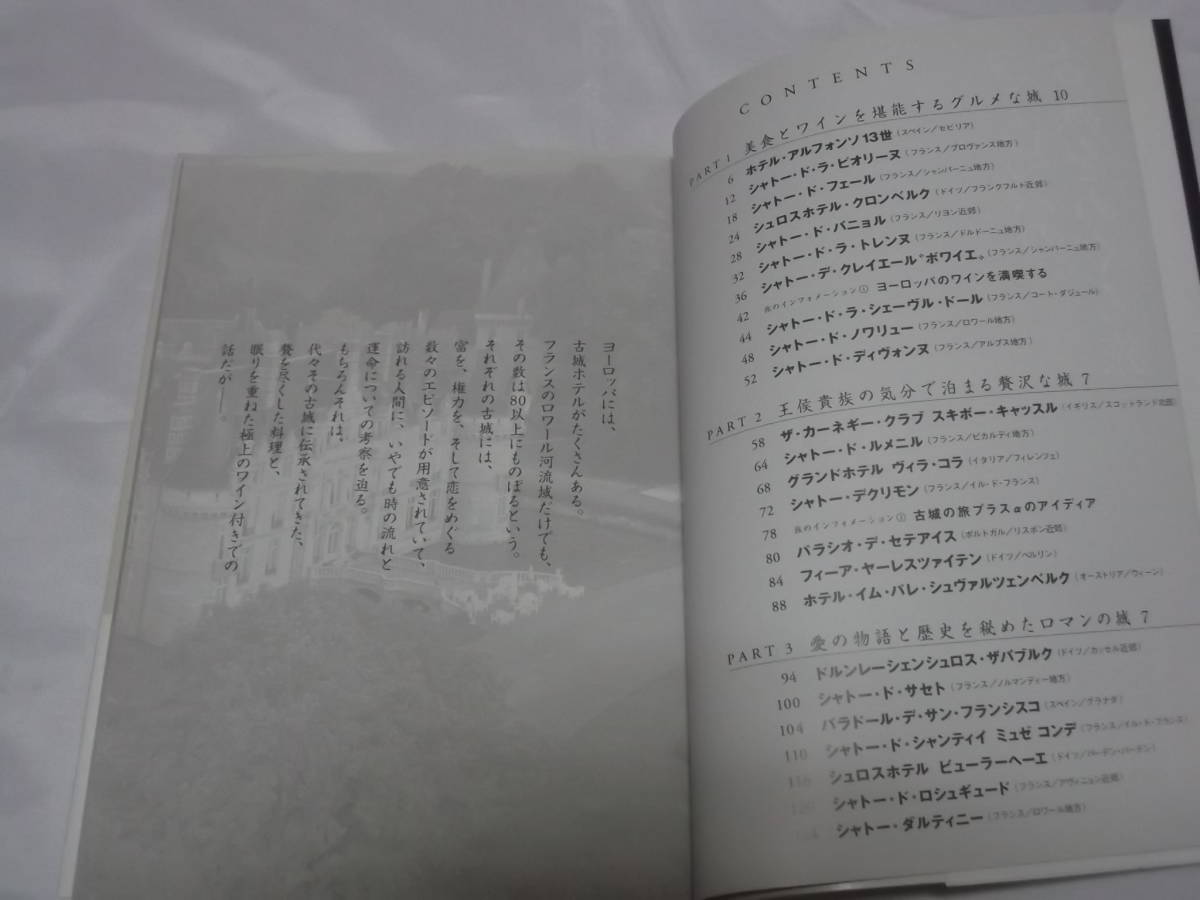 ヨーロッパには、
古城ホテルがたくさんある。
フランスのロワール河流域だけでも、
その数は80以上にものぼるという。
それぞれの古城には、
富を、権力を、そして恋をめぐる
数々のエピソードが用意されていて、
訪れる人間に、いやでも時の流れと
運命についての考察を迫る。
もちろんそれは、
代々その古城に伝承されてきた、
贅を尽くした料理と、
眠りを重ねた極上のワイン付きでの
話だが——。
CONTENTS
PART 1 美食とワインを堪能するグルメな城 10
6 ホテル・アルフォンソ13世（スペイン／セビリア）
12 シャトー・ド・ラ・ピオリーヌ（フランス／プロヴァンス地方）
18 シャトー・ド・フェール（フランス／シャンパーニュ地方）
24 シュロスホテル・クロンベルク（ドイツ／フランクフルト近郊）
28 シャトー・ド・バニョル（フランス／リヨン近郊）
32 シャトー・ド・ラ・トレンヌ（フランス／ドルドーニュ地方）
36 シャトー・デ・クレイエール“ボワイエ”（フランス／シャンパーニュ地方）
42 旅のインフォメーション① ヨーロッパのワインを満喫する
44 シャトー・ド・ラ・シェーヴル・ドール（フランス／コート・ダジュール）
48 シャトー・ド・ノワリュー（フランス／ロワール地方）
52 シャトー・ド・ディヴォンヌ（フランス／アルプス地方）
PART 2 王侯貴族の気分で泊まる贅沢な城 7
58 ザ・カーネギー・クラブ スキボー・キャッスル（イギリス／スコットランド北部）
64 シャトー・ド・ルメニル（フランス／ピカルディ地方）
68 グランドホテル ヴィラ・コラ（イタリア／フィレンツェ）
72 シャトー・デクリモン（フランス／イル・ド・フランス）
78 旅のインフォメーション② 古城の旅プラスαのアイディア
80 パラシオ・デ・セテアイス（ポルトガル／リスボン近郊）
84 フィーア・ヤーレスツァイテン（ドイツ／ベルリン）
88 ホテル・イム・パレ・シュヴァルツェンベルク（オーストリア／ウィーン）
PART 3 愛の物語と歴史を秘めたロマンの城 7
94 ドルンレーシェンシュロス・ザバブルク（ドイツ／カッセル近郊）
100 シャトー・ド・サセト（フランス／ノルマンディー地方）
104 パラドール・デ・サン・フランシスコ（スペイン／グラナダ）
110 シャトー・ド・シャンティイ ミュゼ コンデ（フランス／イル・ド・フランス）
116 シュロスホテル ビューラーヘーエ（ドイツ／バーデン・バーデン）
120 シャトー・ド・ロシュギュード（フランス／アヴィニョン近郊）
シャトー・ダルティニー（フランス／ロワール地方）